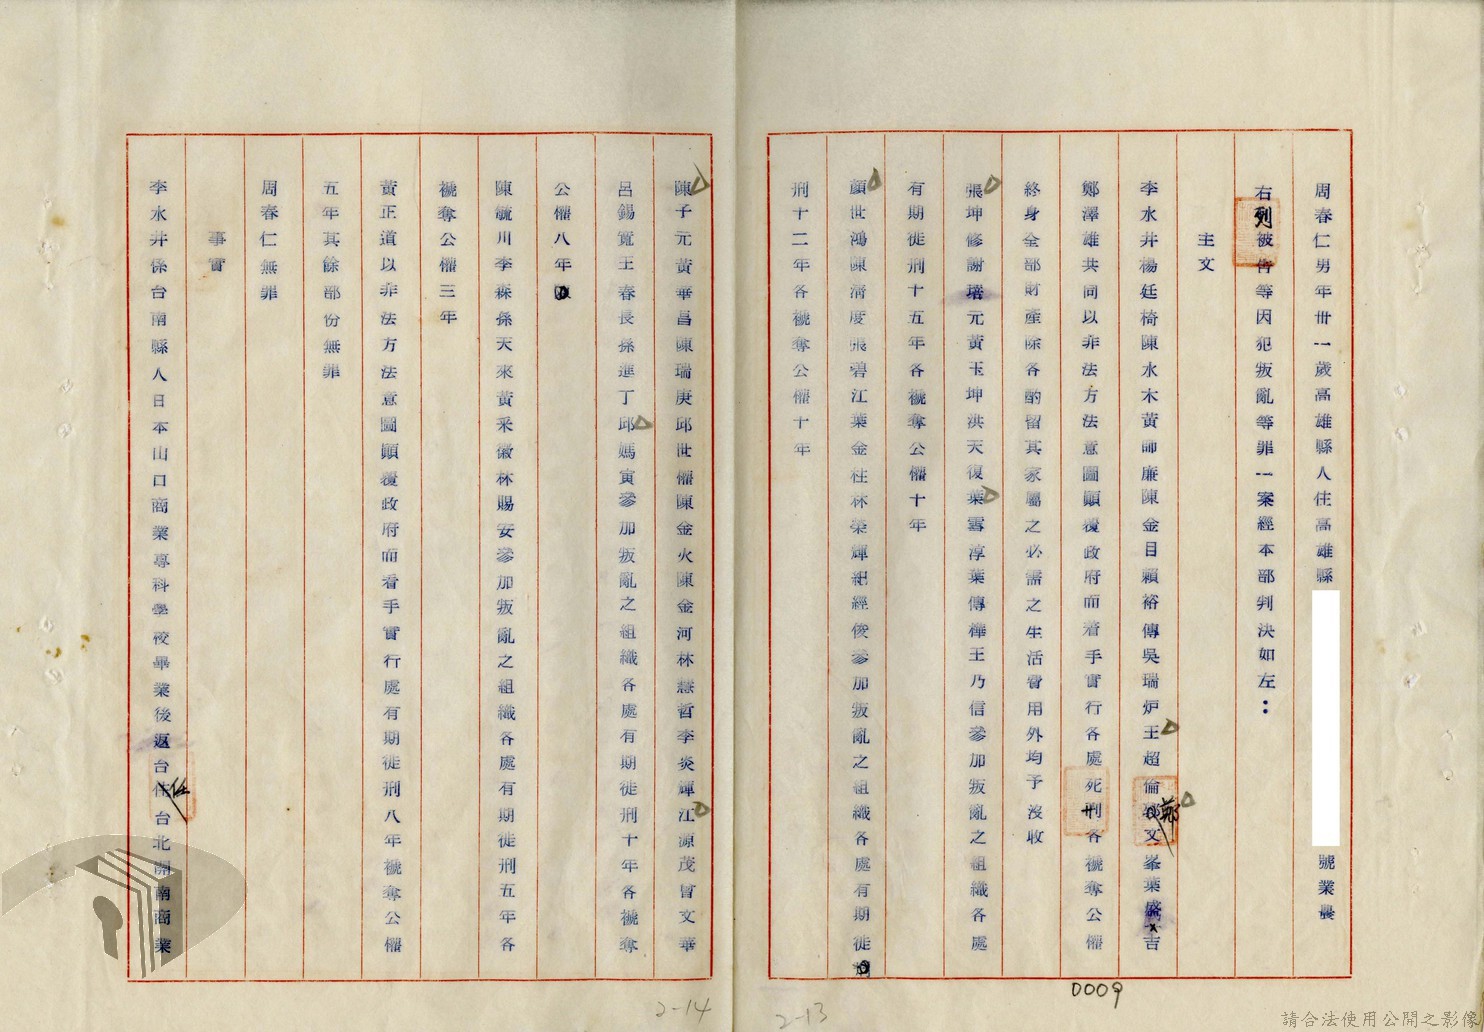 周春仁男年卅一歲高雄縣人住高雄縣
號業農
右列被告等因犯叛亂等罪一案經本部判決如左：
主文
李水井楊廷椅陳水木黃師廉陳金目賴裕傳吳瑞炉王超倫鄭文峯葉盛吉
鄭澤雄共同以非法方法意圖顛覆政府而着手實行各處死刑各褫奪公權
終身全部財產除各酌留其家屬之必需之生活費用外均予沒收
張坤修謝培元黃玉坤洪天復葉雪淳葉傳樺王乃信參加叛亂之組織各處
有期徒刑十五年各褫奪公權十年
顏世鴻陳清度張碧江葉金柱林榮輝紀經俊參加叛亂之組織各處有期徒
刑十二年各褫奪公權十年
0009
2-13
陳子元黃華昌陳瑞庚邱世權陳金火陳金河林慧哲李炎輝江源茂曾文華
呂錫寬王春長孫進丁邱媽寅參加叛亂之組織各處有期徒刑十年各褫奪
公權八年
陳毓川李森孫天來黃采徽林賜安參加叛亂之組織各處有期徒刑五年各
褫奪公權三年
黃正道以非法方法意圖顛覆政府而着手實行處有期徒刑八年褫奪公權
五年其餘部份無罪
周春仁無罪
事實
李水井係台南縣人日本山口商業專科學校畢業後返台任台北開南商業
2-14
請合法使用公開之影像